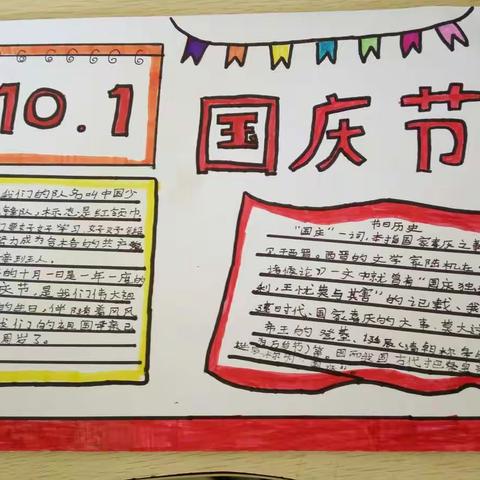 10.1
国庆节
我们的队名叫中国少
先锋队,标志是红领巾
们要好好学习,好好锻
努力成为合格的共产
接班人。
的十月一日是一年一度的
庆节,是我们伟大祖
的生日,伴随着风风
我们的祖国母亲已
周岁了。
节日历史
"国庆"一词,本指国家喜庆之事
见西晋。西晋的文学家陆机在
诸侯论》一文中就曾有"国庆独
利,主忧莫与其害"的记载、我
建时代、国家喜庆的大事,莫大过
帝王的登基、诞辰(清朝称皇
等。因而我国古代把皇